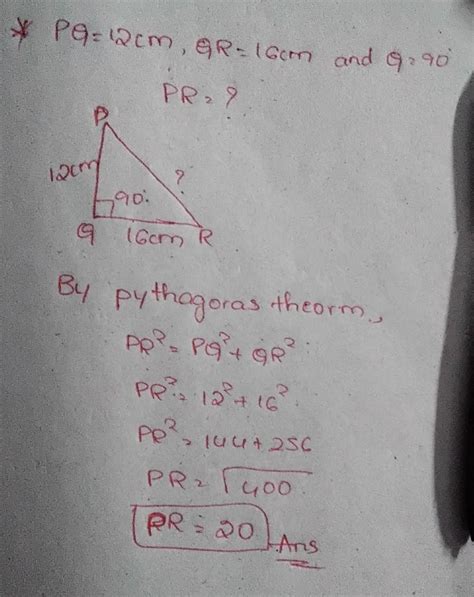 * PQ = 12cm, QR = 16cm and Q = 90°
PR = ?
P
12cm
?
90°
Q 16cm R
By pythagoras theorm,
PR² = PQ² + QR²
PR² = 12² + 16²
PR² = 144 + 256
PR = √400
PR = 20 Ans